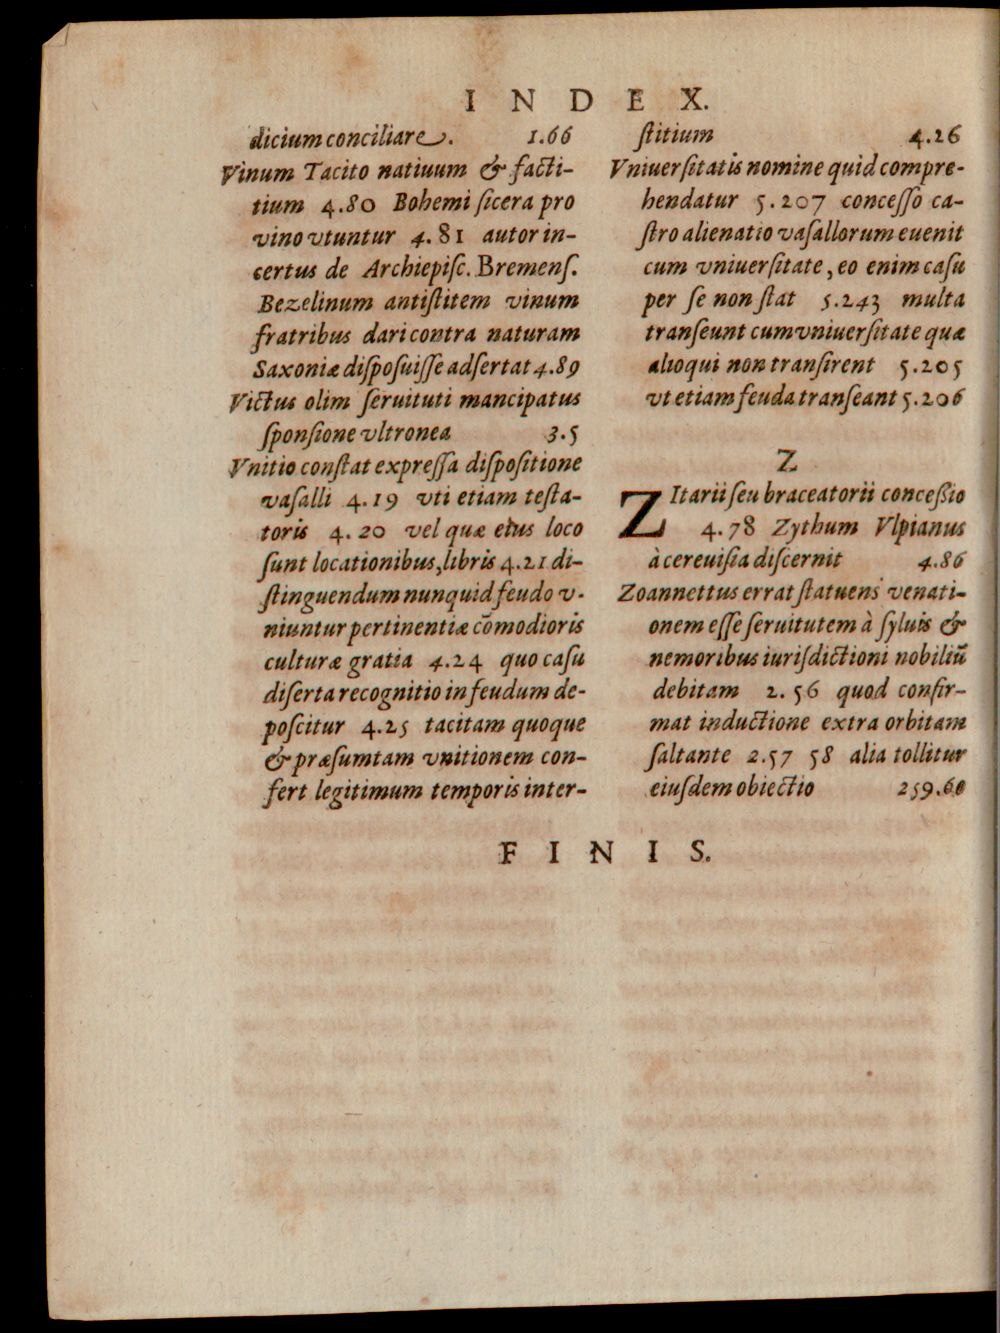 INDEX.
dicium conciliare. 1.66
Vinum Tacito natiuum & facti-
tium 4.80 Bohemi sicera pro
vino vtuntur 4.81 autor in-
certus de Archiepisc. Bremens.
Bezelinum antistitem vinum
fratribus dari contra naturam
Saxoniæ disposuisse adsertat 4.89
Victus olim seruituti mancipatus
sponsione vltronea 3.5
Vnitio constat expressa dispositione
vasalli 4.19 vti etiam testa-
toris 4.20 vel quæ eius loco
sunt locationibus, libris 4.21 di-
stinguendum nunquid feudo v-
niuntur pertinentiæ cōmodioris
culturæ gratia 4.24 quo casu
diserta recognitio in feudum de-
poscitur 4.25 tacitam quoque
& præsumtam vnitionem con-
fert legitimum temporis inter-
stitium 4.26
Vniuersitatis nomine quid compre-
hendatur 5.207 concesso ca-
stro alienatio vasallorum euenit
cum vniuersitate, eo enim casu
per se non stat 5.243 multa
transeunt cum vniuersitate quæ
alioqui non transirent 5.205
vt etiam feuda transeant 5.206
Z
ZItarii seu braceatorii concessio
4.78 Zythum Vlpianus
à cereuisia discernit 4.86
Zoannettus errat statuens venati-
onem esse seruitutem à syluis &
nemoribus iurisdictioni nobiliū
debitam 2.56 quod confir-
mat inductione extra orbitam
saltante 2.57 58 alia tollitur
eiusdem obiectio 259.60
FINIS.